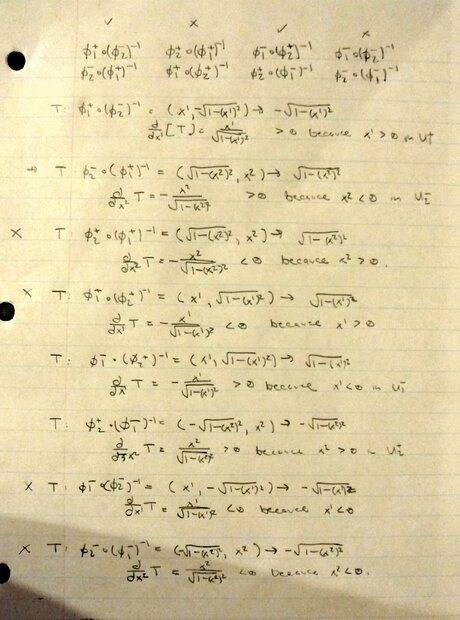 ✓ × ✓ ×
ϕ₁⁺∘(ϕ₂⁻)⁻¹ ϕ₂⁺∘(ϕ₁⁺)⁻¹ ϕ₁⁻∘(ϕ₂⁺)⁻¹ ϕ₁⁻∘(ϕ₂⁻)⁻¹
ϕ₂⁻∘(ϕ₁⁺)⁻¹ ϕ₁⁺∘(ϕ₂⁺)⁻¹ ϕ₂⁺∘(ϕ₁⁻)⁻¹ ϕ₂⁻∘(ϕ₁⁻)⁻¹
T: ϕ₁⁺∘(ϕ₂⁻)⁻¹ = (x¹, -√(1-(x¹)²)) → -√(1-(x¹)²)
∂/∂x¹ [T] = x¹/√(1-(x¹)²) >0 because x¹>0 in U₁⁺
→ T: ϕ₂⁻∘(ϕ₁⁺)⁻¹ = (√(1-(x²)²), x²) → √(1-(x²)²)
∂/∂x² T = -x²/√(1-(x²)²) >0 because x²<0 in U₂⁻
× T: ϕ₂⁺∘(ϕ₁⁺)⁻¹ = (√(1-(x²)²), x²) → √(1-(x²)²)
∂/∂x² T = -x²/√(1-(x²)²) <0 because x²>0.
× T: ϕ₁⁺∘(ϕ₂⁺)⁻¹ = (x¹, √(1-(x¹)²)) → √(1-(x¹)²)
∂/∂x¹ T = -x¹/√(1-(x¹)²) <0 because x¹>0
T: ϕ₁⁻∘(ϕ₂⁺)⁻¹ = (x¹, √(1-(x¹)²)) → √(1-(x¹)²)
∂/∂x¹ T = -x¹/√(1-(x¹)²) >0 because x¹<0 in U₁⁻
T: ϕ₂⁺∘(ϕ₁⁻)⁻¹ = (-√(1-(x²)²), x²) → -√(1-(x²)²)
∂/∂x² T = x²/√(1-(x²)²) >0 because x²>0 in U₂⁺
× T: ϕ₁⁻∘(ϕ₂⁻)⁻¹ = (x¹, -√(1-(x¹)²)) → -√(1-(x¹)²)
∂/∂x¹ T = x¹/√(1-(x¹)²) <0 because x¹<0
× T: ϕ₂⁻∘(ϕ₁⁻)⁻¹ = (-√(1-(x²)²), x²) → -√(1-(x²)²)
∂/∂x² T = x²/√(1-(x²)²) <0 because x²<0.